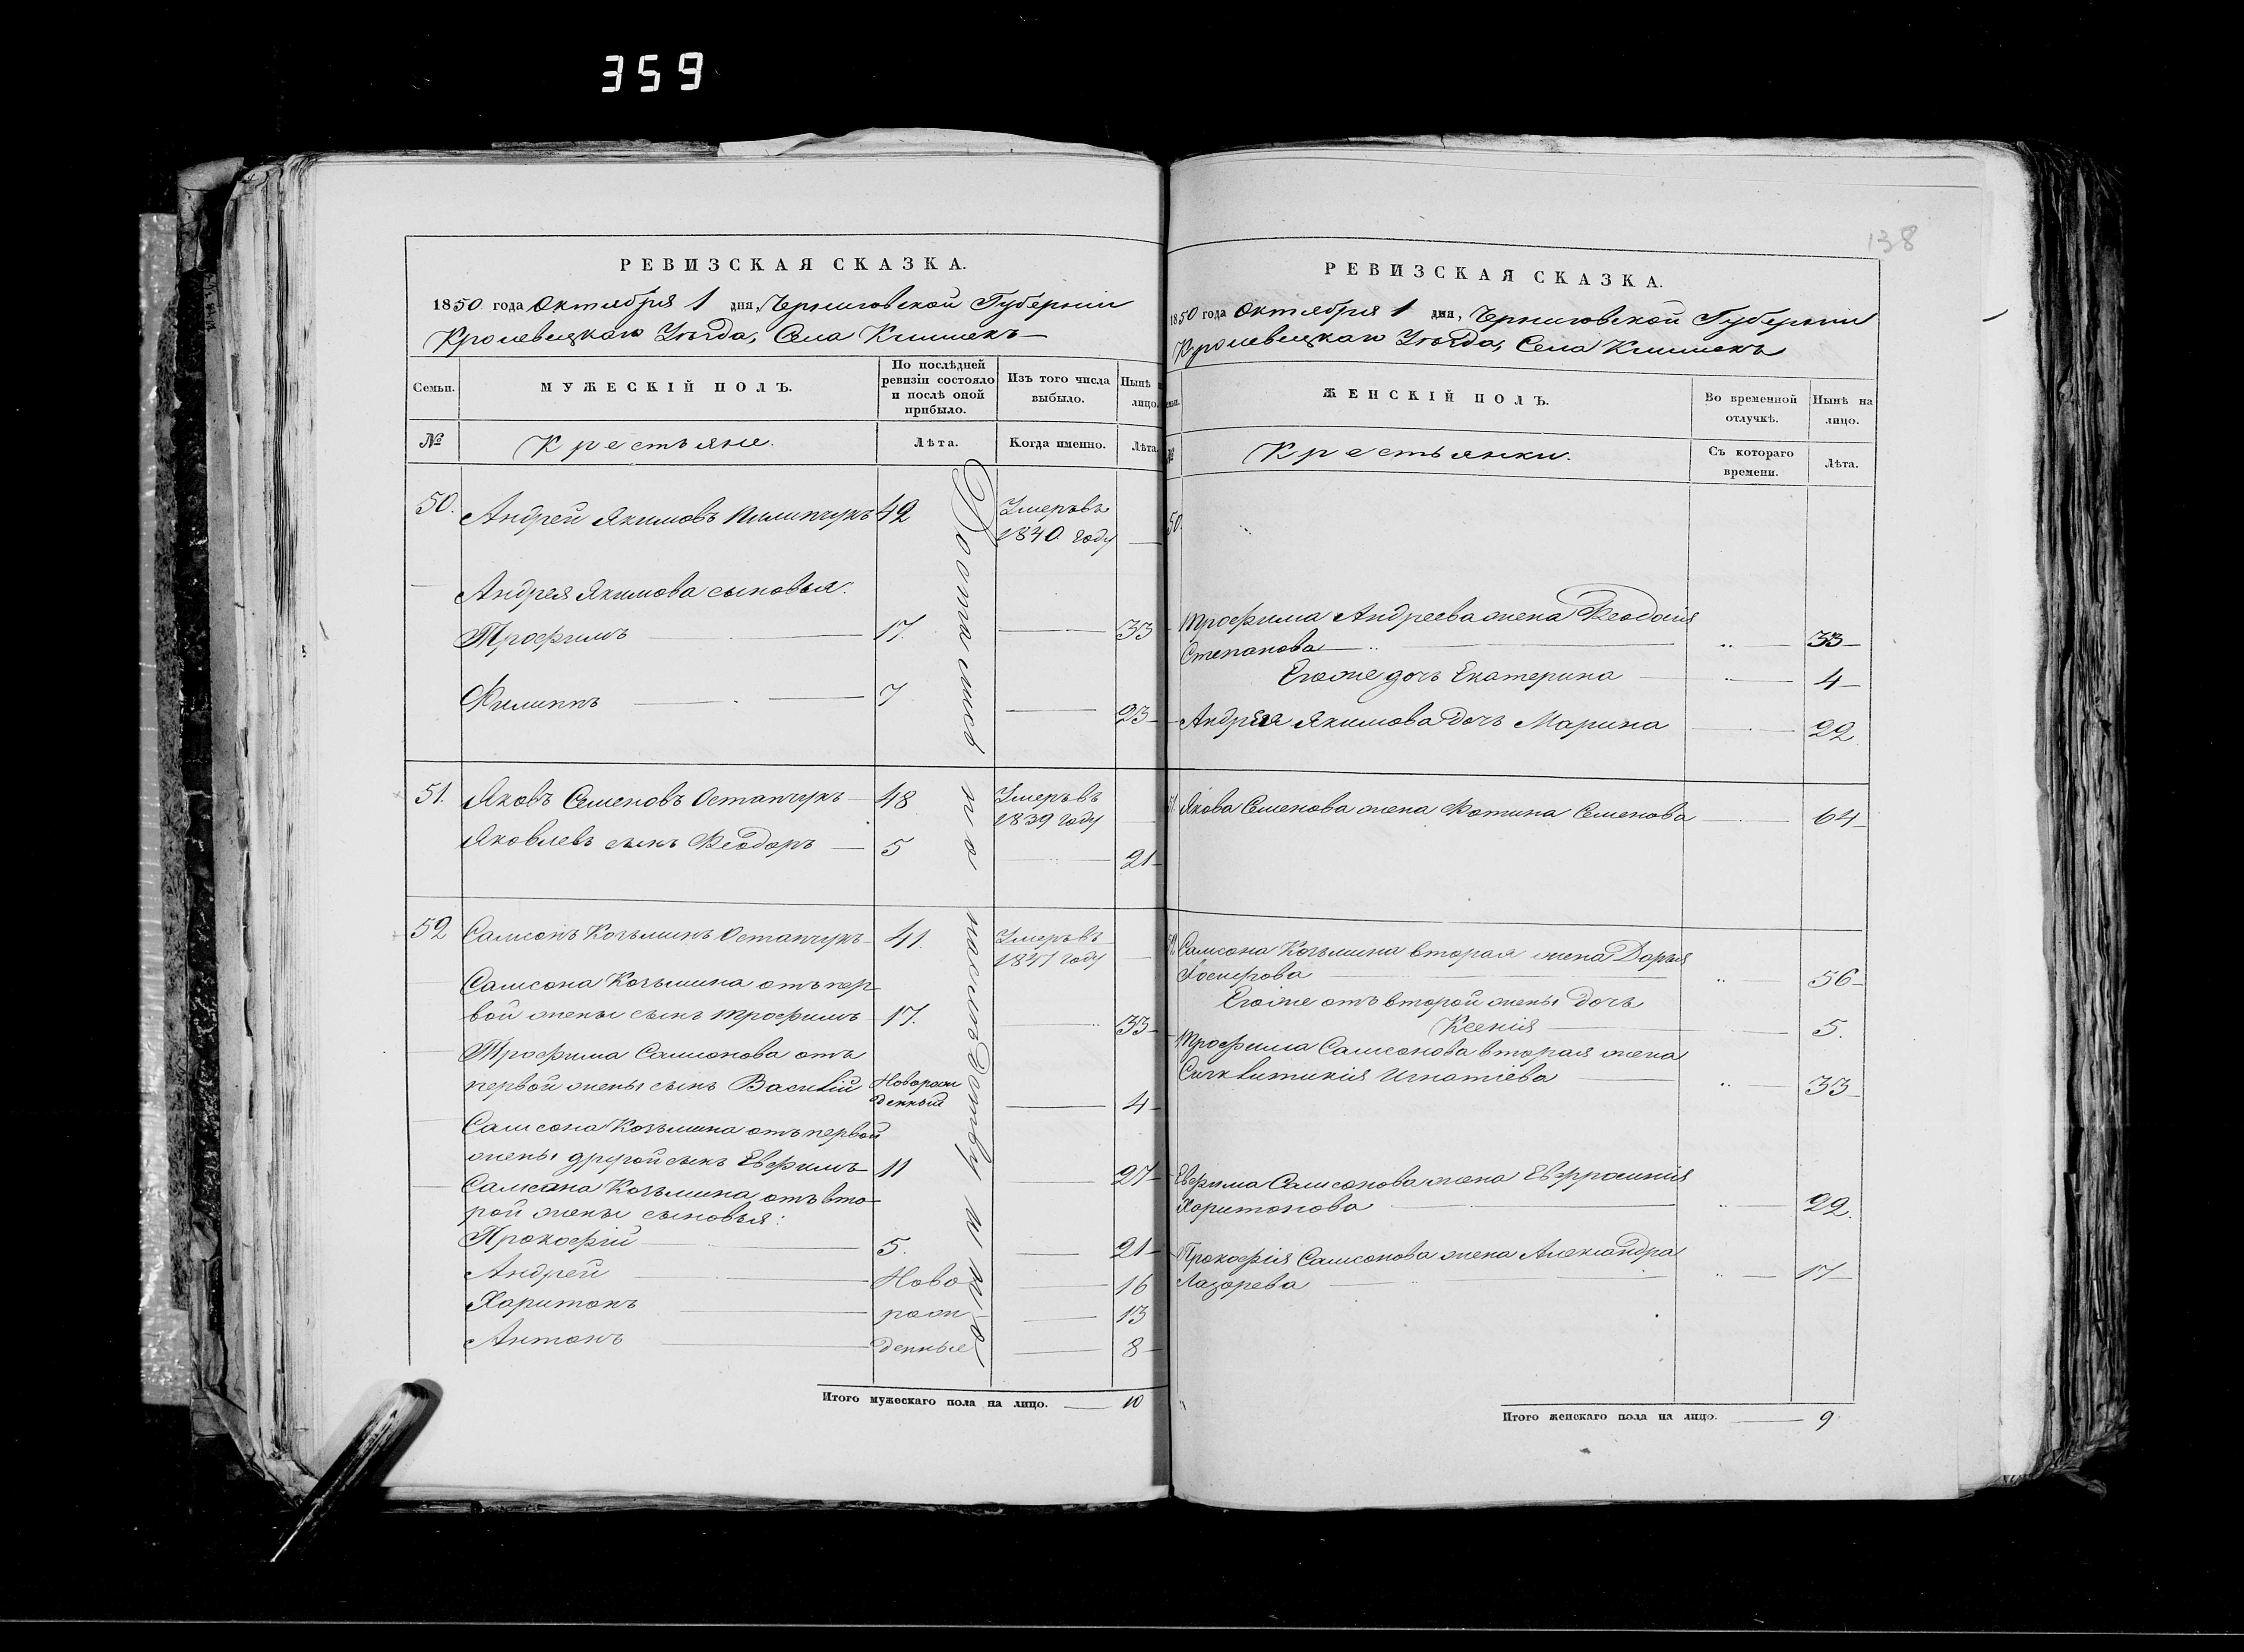 359
138
РЕВИЗСКАЯ СКАЗКА.
1850 года Октября 1 дня, Черниговской Губернии
Кролевецкаго Уѣзда, Села Клишекъ
Семьи. МУЖЕСКІЙ ПОЛЪ. По послѣдней ревизіи состояло и послѣ оной прибыло. Изъ того числа выбыло. Нынѣ лицо.
№ Крестьяне. Лѣта. Когда именно. Лѣта.
50. Андрей Якимовъ Пилипчукъ 42 Умеръ въ
1840 году
Андрея Якимова сыновья:
Трофимъ 17. 33
Филиппъ 7 23
51. Яковъ Семеновъ Остапчукъ 48 Умеръ въ
1839 году
Яковлевъ сынъ Ѳеодоръ 5 21
52 Самсонъ Козьминъ Остапчукъ 41. Умеръ въ
1847 году
Самсона Козьмина отъ пер
вой жены сынъ Трофимъ 17. 33
Трофима Самсонова отъ
первой жены сынъ Василій Новорож
денный 4
Самсона Козьмина отъ первой
жены другой сынъ Евфимъ 11 27
Самсона Козьмина отъ вто
рой жены сыновья:
Прокофій 5. 21
Андрей Ново 16
Харитонъ рож 13
Антонъ денные 8
Итого мужескаго пола на лицо. 10
РЕВИЗСКАЯ СКАЗКА.
1850 года Октября 1 дня, Черниговской Губернии
Кролевецкаго Уѣзда, Села Клишекъ
ЖЕНСКІЙ ПОЛЪ. Во временной отлучкѣ. Нынѣ на лицо.
№ Крестьянки. Съ котораго времени. Лѣта.
50
Трофима Андреева жена Ѳеодосія
Степанова 33
Егоже дочь Екатерина 4
Андрея Якимова дочь Марина 22
Якова Семенова жена Фотина Семенова 64
Самсона Козьмина вторая жена Дарья
56
Егоже отъ второй жены дочь
Ксенія 5.
Трофима Самсонова вторая жена
Игнатіева 33
Евфима Самсонова жена Евфросинія
Харитонова 22.
Прокофія Самсонова жена Александра
Лазорева 17
Итого женскаго пола на лицо. 9.